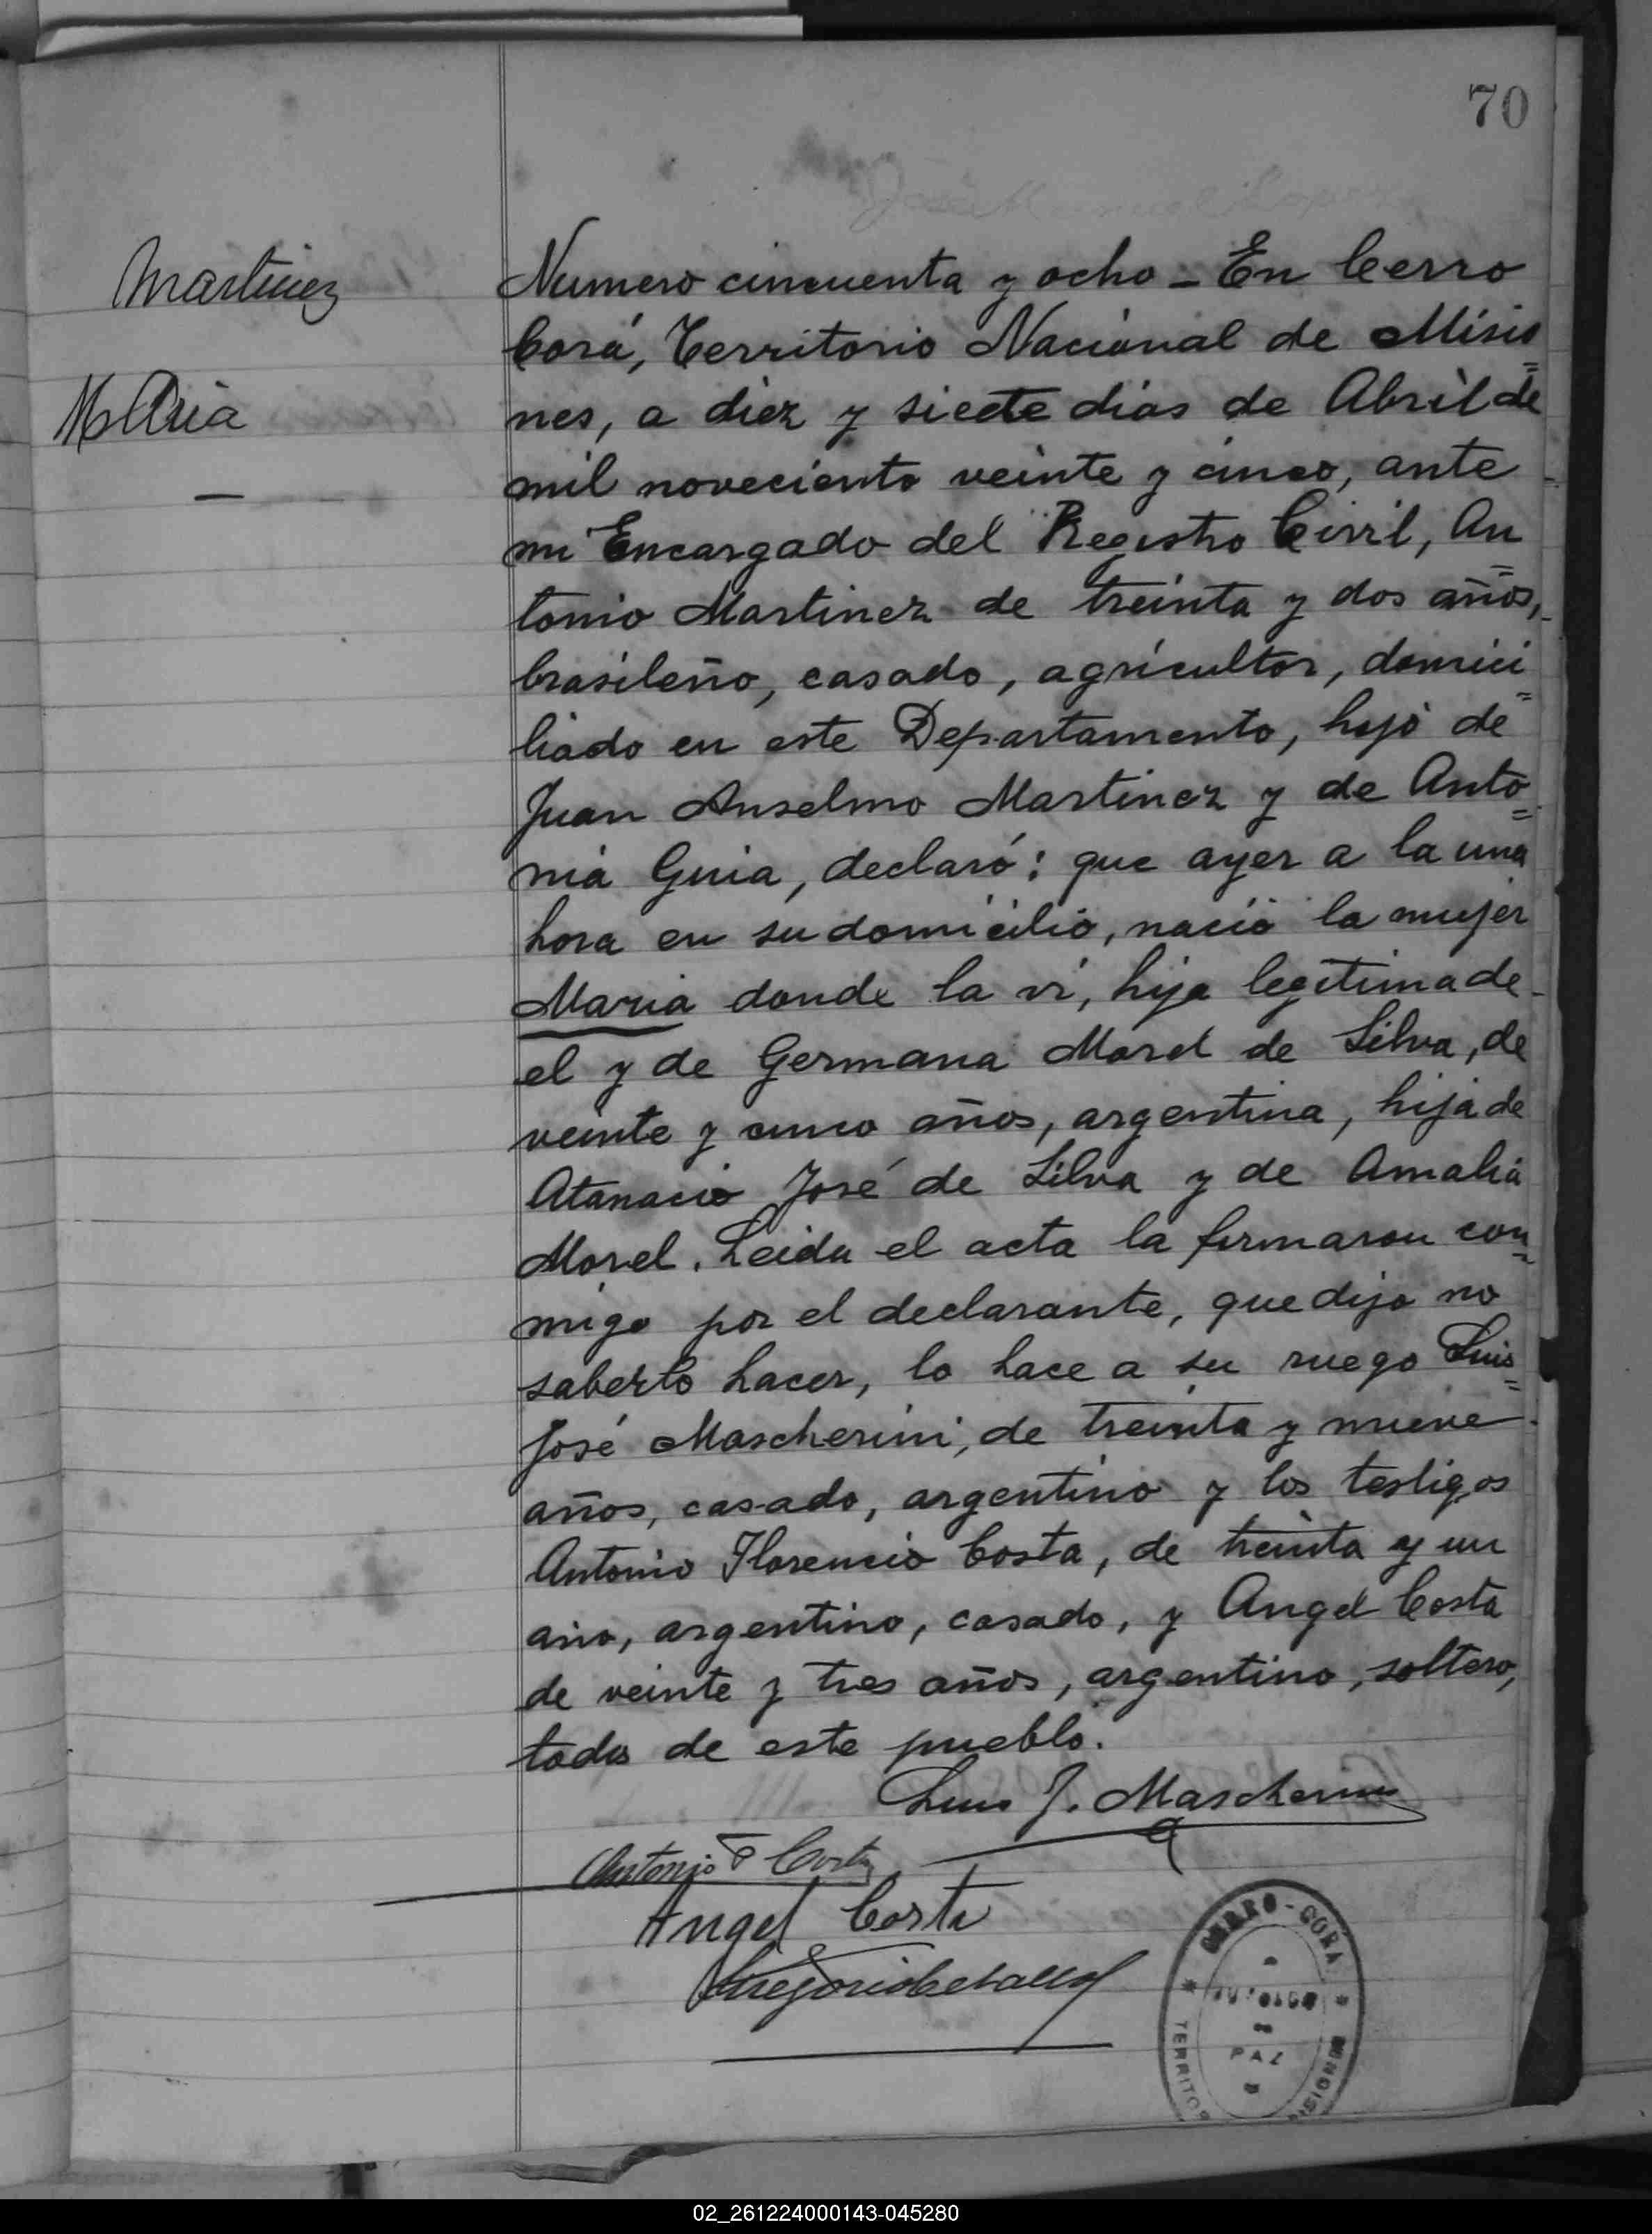 70
Martinez
Maria
Numero cincuenta y ocho - En Cerro
Corá, Territorio Nacional de Misio=
nes, a diez y siete dias de Abril de
mil noveciento veinte y cinco, ante
mi Encargado del Registro Civil, An=
tonio Martinez de treinta y dos años,
brasileño, casado, agricultor, domici=
liado en este Departamento, hijo de
Juan Anselmo Martinez y de Anto=
nia Guia, declaró: que ayer a la una
hora en su domicilio, nació la mujer
Maria donde la vi, hija legitima de
el y de Germana Morel de Silva, de
veinte y cinco años, argentina, hija de
Atanacio José de Silva y de Amalia
Morel. Leida el acta la firmaron con=
migo por el declarante, que dijo no
saberlo hacer, lo hace a su ruego Luis=
José Mascherini, de treinta y nueve
años, casado, argentino y los testigos
Antonio Florencio Costa, de treinta y un
año, argentino, casado, y Angel Costa
de veinte y tres años, argentino, soltero,
todos de este pueblo.
Luis J. Mascherini
Antonio F Costa
Angel Costa
Gregorio
CERRO-CORÁ
PAZ
02_261224000143-045280